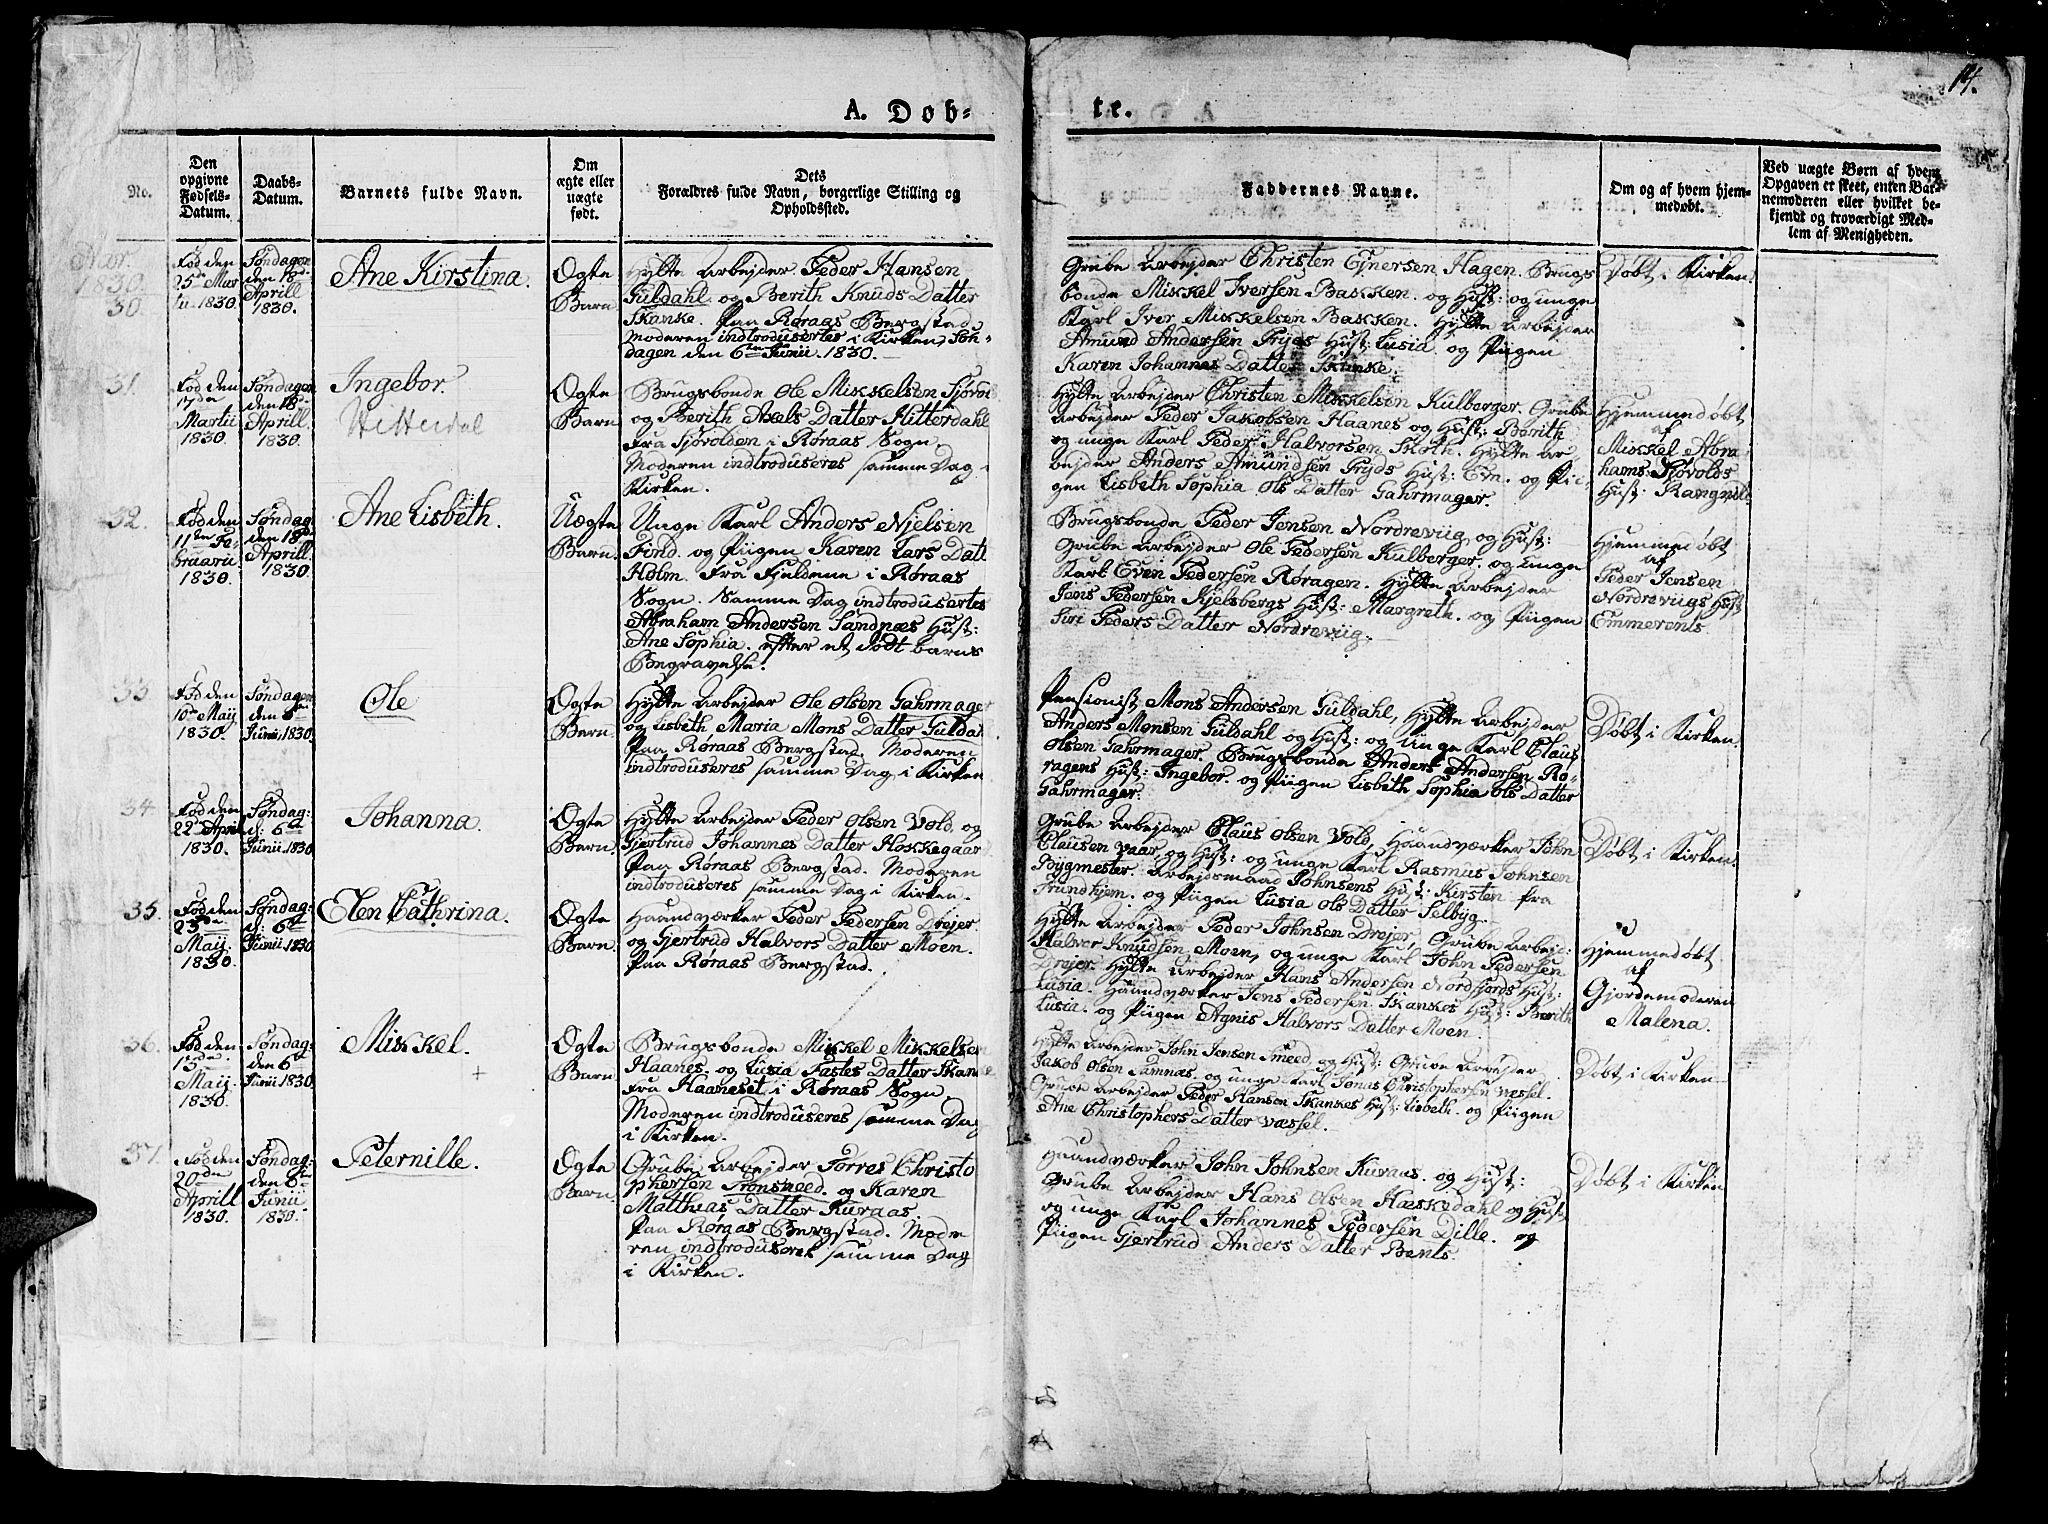 14.
A. Døb-
te.
No.
Den opgivne Fødsels-Datum.
Daabs-Datum.
Barnets fulde Navn.
Om ægte eller uægte født.
Dets Forældres fulde Navn, borgerlige Stilling og Opholdssted.
Faddernes Navne.
Om og af hvem hjemmedøbt.
Ved uægte Børn af hvem Opgaven er skeet, enten Barnemoderen eller hvilket bekjendt og troværdigt Medlem af Menigheden.
1830.
30.
Fød den
25de Mar
tii. 1830.
Søndagen
den 18de
Aprill
1830.
Ane Kirstina.
Ægte
Barn
Hytte Arbejder Peder Hansen
Guldahl og Berith Knuds Datter
Skanke. Paa Røraas Bergstad.
Moderen indtroduseres i Kirken, Søn-
dagen den 6te Junii. 1830.
Grube Arbejder Christen Ejnersen Hagen. Brugs
bonde Mikkel Iversen Bakken. og Hust: og unge
Karl Iver Mikkelsen Bakken. Hytte Arbejder
Amund Andersen Tryds Hust: Lusia. og Piigen
Karen Johannes Datter Skanke.
Døbt i Kirken.
31.
Fød den
17de
Martii
1830.
Søndagen
den 18de
Aprill.
1830.
Ingebor.
Hitterdal
Ægte
Barn
Brugsbonde Ole Mikkelsen Sjøvold
og Berith Axels Datter Hitterdahl
fra Sjøvolden i Røraas Sogn.
Moderen indtroduseres samme Dag i
Kirken.
Hytte Arbejder Christen Mikkelsen Kulberger. Grube
Arbejder Peder Jakobsen Haanes og Hust: Berith
og unge Karl Peder Halvorsen Skoth. Hytte Ar
bejder Anders Amundsen Tryds Hust: Eva. og Pii-
gen Lisbeth Sophia Ols Datter Gahrmager.
Hjemmedøbt
af
Mikkel Abra
hams Sjøvolds
Hust: Rangnild
32.
Fød den
11te Fe-
bruarii
1830.
Søndag
den 18de
Aprill
1830.
Ane Lisbeth.
Uægte
Barn.
Unge Karl Anders Njelsen
Find. og Piigen Karen Lars Datt
Holm. fra Fjeldene i Røraas
Sogn. Samme Dag indtrodusertes
Abraham Andersen Sandnæs Hust:
Ane Sophia. efter et Født barns
Begravelse.
Brugsbonde Peder Jensen Nordreviig og Hust:
Grube Arbejder Ole Pedersen Kulberger. og unge
Karl Even Pedersen Røragen. Hytte Arbejder
Jens Pedersen Kjelsbergs Hust: Margreth. og Piigen
Siri Peders Datter Nordreviig.
Hjemmedøbt
af
Peder Jensen
Nordreviigs Hust
Emmerents.
33
Fød den
10de Maij
1830.
Søndagen
den 6te
Junii, 1830.
Ole
Ægte
Barn.
Hytte Arbejder Ole Olsen Gahrmager
og Lisbeth Maria Mons Datter Guldal
Paa Røraas Bergstad. Moderen
indtroduseres samme Dag i Kirken
Pensionist Mons Andersen Guldahl, Hytte Arbejder
Anders Monsen Guldahl og Hust: og Unge Karl Claus
Olsen Gahrmager. Brugsbonde Anders Andersen Rø-
ragens Hust: Ingebor. og Piigen Lisbeth Sophia Ols Datter
Gahrmager.
Døbt i Kirken.
34
Fød den
22de April
1830.
Søndag:
d: 6te
Junii. 1830
Johanna.
Ægte
Barn.
Hytte Arbejder Peder Olsen Vold, og
Gjertrud Johannes Datter Floskegaar
Paa Røraas Bergstad. Moderen
indtroduseres samme Dag i Kirken.
Grube Arbejder Claus Olsen Vold, Haandværker John
Clausen Vaar, og Hust: og unge Karl Rasmus Johnsen
Bygmester. Arbejdsmaad Johnsens Hust: Kirsten fra
Trundhjem. og Piigen Lusia Ols Datter Selbÿg.
Døbt i Kirken.
35.
Fød den
23de
Maij
1830.
Søndag:
d: 6te
Junii. 1830
Elen Cathrina.
Ægte
Barn.
Haandværker Peder Pedersen Drejer
og Gjertrud Halvors Datter Moen.
Paa Røraas Bergstad.
Hytte Arbejder Peder Johnsen Drejer, Grube Arbejd:
Halvor Knudsen Moen, og unge Karl John Pedersen
Drejer. Hytte Arbejder Hans Andersen Nordfjords Hust:
Lusia. Haandværker Jens Pedersen Skankes Hust: Berith
Lusia. og Piigen Agnis Halvors Datter Moen.
Hjemmedøbt
af
Gjordemoderen
Malena.
36.
Fød den
13de
Maij.
1830.
Søndag:
den 6te
Junii 1830.
Mikkel.
+
Ægte
Barn
Brugsbonde Mikkel Mikkelsen
Haanes. og Lusia Fastes Datter Skanke
fra Haaneset i Røraas Sogn,
Moderen indtroduseres samme Dag
i Kirken.
Hytte Arbejder John Jensen Smeed, og Hust: Grube Arbejder
Jakob Olsen Tamnas. og unge Karl Jonas Christophersen Væssel.
Grube Arbejder Peder Hansen Skankes Hust: Lisbeth. og Piigen
Ane Christophers Datter Væssel.
Døbt i Kirken
37.
Fød den
20de
Aprill
1830.
Søndag:
den 6te
Junii
1830.
Peternille.
Ægte
Barn
Grube Arbejder Torres Christo
phersen Trønsneed. og Karen
Matthias Datter Kuraas.
Paa Røraas Bergstad. Mode
ren indtroduseret samme Dag
i Kirken.
Haandværker John Johnsen Kuraas. og Hust:
Grube Arbejder Hans Olsen Hæskedahl og Hust
og unge Karl Johannes Pedersen Dille. og
Piigen Gjertrud Anders Datter Bents.
Døbt i Kirken